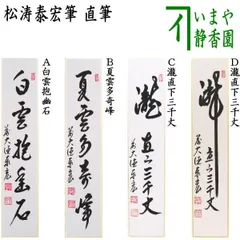 松涛泰宏筆 直筆
いまや
静香園
A白雲抱幽石
B夏雲多奇峰
C瀧直下三千丈
D瀧直下三千丈
白雲抱幽石
夏雲多奇峰
瀧 直下三千丈
直下三千丈